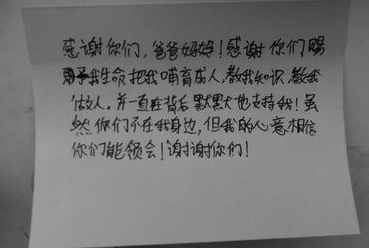 感谢你们，爸爸妈妈！感谢你们赐
予我生命把我哺育成人，教我知识，教我
做人。并一直在背后默默地支持我！虽
然你们不在我身边，但我的心意相信
你们能领会！谢谢你们！